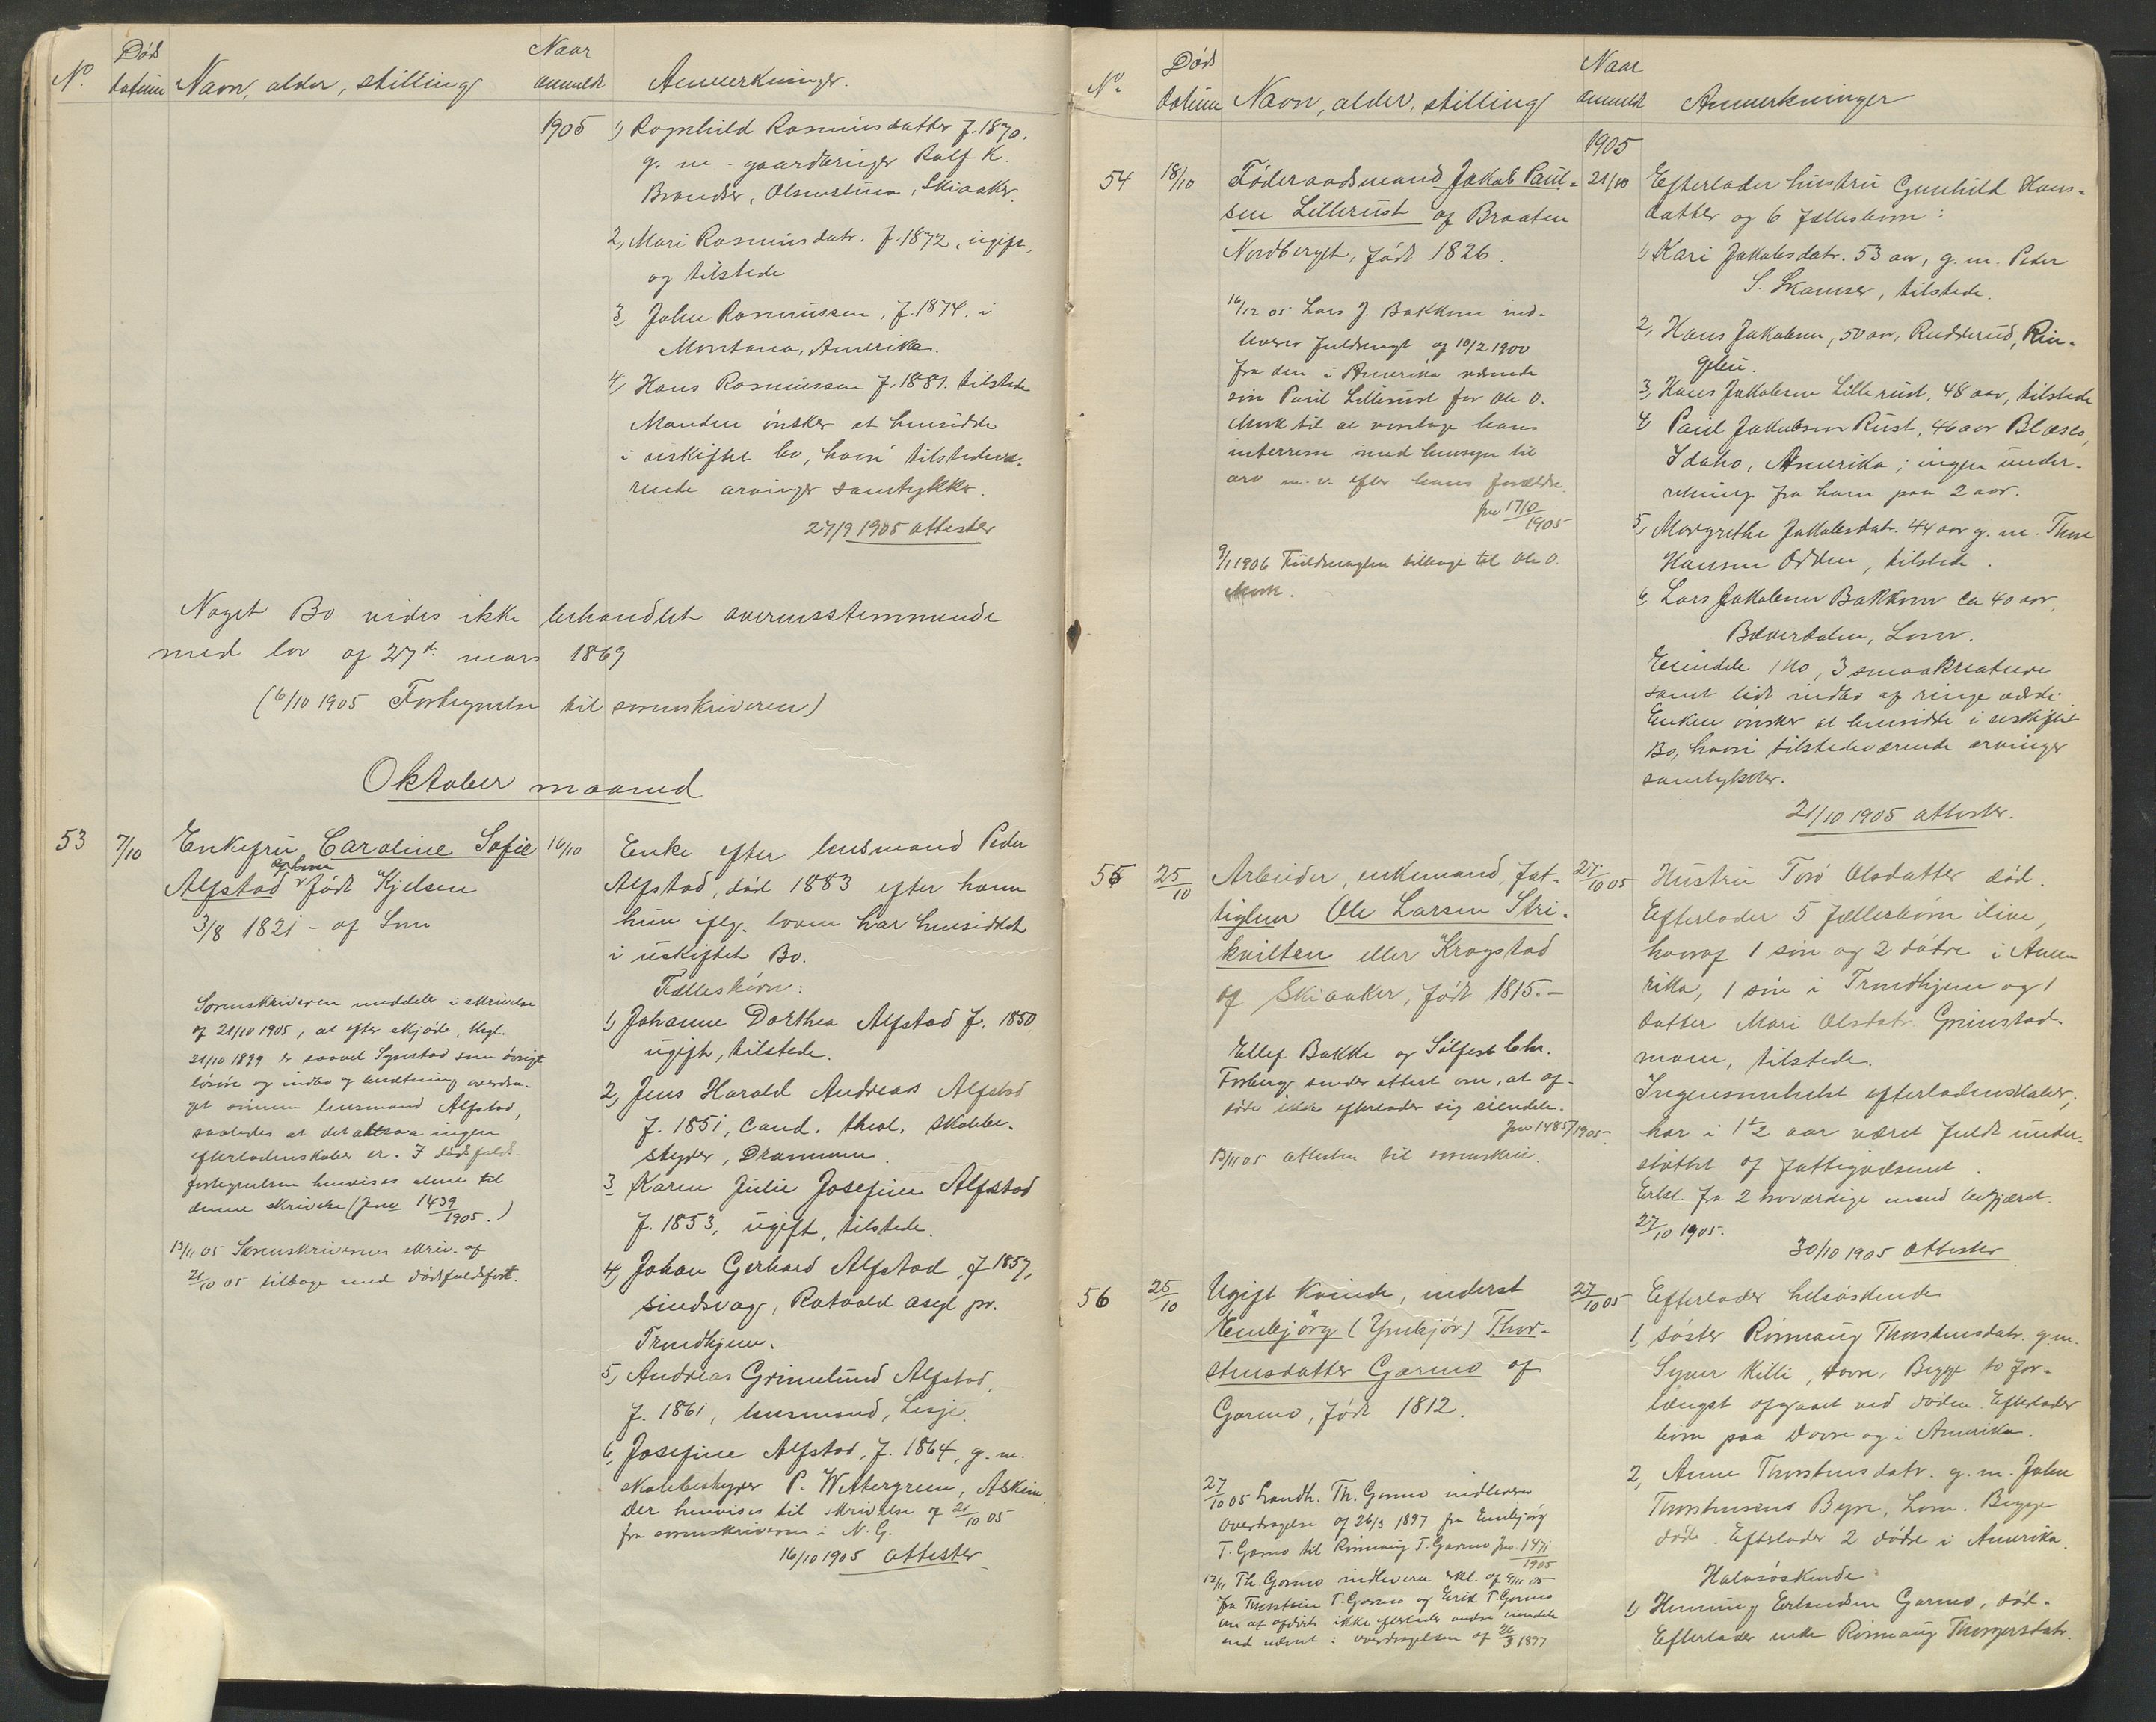 No. Døds datum Navn, alder, stilling Naar anmeldt Anmerkninger.
1905 1, Ragnhild Rasmusdatter f. 1870.
g. m. gaardbruger Rolf K.
Brandser, Olsmstuen, Skiaaker.
2, Mari Rasmusdatr. f. 1872, ugift,
og tilstede
3, Johan Rasmussen, f. 1874. i
Montana, Amerika.
4, Hans Rasmussen f. 1881. tilstede
Manden ønsker at hensidde
i uskiftet bo, hvori tilstedevæ-
rende arvinger samtykker.
27/9 1905 attester
Noget Bo vides ikke behandlet overensstemmende
med lov af 27de mars 1869
(6/10 1905 Fortegnelse til sorenskriveren)
Oktober maaned
53 7/10 Enkefru Caroline Sofie 16/10
Alfstad født Kjelsen
3/8 1821 - af Lom
Sorenskriveren meddeler i skrivelse
af 21/10 1905, at efter skjøde, thgl.
21/10 1899 er saavel Synstad som øvrigt
løsøre og indbo og besætning overdra-
get sønnen husmand Alfstad,
saaledes at det altsaa ingen
efterladenskaber er. I dødsfalds-
fortegnelsen henvises alene til
denne skrivelse (Jno 1439/1905.)
13/11 05 Sorenskriverens skriv. af
21/10 05 tilbage med dødsfaldsfort.
Enke efter husmand Peder
Alfstad, død 1883 efter hvem
hun iflg. loven har hensiddet
i uskiftet Bo.
Fællesbørn:
1, Johanne Dorthea Alfstad f. 1850
ugift, tilstede.
2, Jens Harald Andreas Alfstad
f. 1851, cand. theol. skolebe-
styrer, Drammen.
3, Karen Julie Josefine Alfstad
f. 1853, ugift, tilstede.
4, Johan Gerhard Alfstad, f 1857,
sindsvag, Rotvold asyl pr.
Trondhjem.
5, Andreas Grimelund Alfstad,
f. 1861, husmand, Lesje.
6, Josefine Alfstad, f. 1864, g. m.
skolebestyrer P. Wettergreen, Askim.
Der henvises til skrivelse af 21/10 05
fra sorenskriveren i N. G.
16/10 1905 attester
No. Døds datum Navn, alder, stilling Naar anmeldt Anmerkninger
1905
54 18/10 Føderaadsmand Jakob Paul- 21/10
sen Lillerust af Braaten
Nordberget, født 1826.
16/12 05 Lars J. Bakkom ind-
leverer fuldmagt af 10/2 1900
fra den i Amerika værende
søn Paul Lillerust for Ole O.
Mork til at varetage hans
interesse med hensyn til
arv m. v. efter hans forældre.
Jno 1710/1905
9/1 1906 Fuldmagten tilbage til Ole O.
Mork.
Efterlader hustru Gunhild Hans-
datter og 6 fællesbørn:
1, Kari Jakobsdatr. 53 aar, g. m. Peder
S. Skamser, tilstede.
2, Hans Jakobsen, 50 aar, Rudderud, Rin-
gebu.
3, Hans Jakobsen Lillerust, 48 aar, tilstede
4, Paul Jakobsen Rust, 46 aar
Idaho, Amerika; ingen under-
retning fra ham paa 2 aar.
5, Margrethe Jakobsdatr. 44 aar g. m. Thor
Hansen Odden, tilstede.
6, Lars Jakobsen Bakkom ca 40 aar,
Bæverdalen, Lom.
Eiendele 1 ko, 3 smaakreature
samt lidt indbo af ringe værdi.
Enken ønsker at hensidde i uskiftet
Bo, hvori tilstedeværende arvinger
samtykker.
21/10 1905 attester.
55 25/10 Arbeider, enkemand, fat- 27/10 05
tiglem Ole Larsen Stri-
kvilten eller Krogstad
af Skiaaker, født 1815. -
Ellef Bakke og Sølfest Chr.
Forberg sender attest om, at af-
døde ikke efterlader sig eiendele.
Jno 1485/1905.
13/11 05 attesten til sorenskriv.
Hustru Torø Olsdatter død.
Efterlader 5 fællesbørn ilive,
hvoraf 1 søn og 2 døtre i Ame-
rika, 1 søn i Trondhjem og 1
datter Mari Olsdatr. Grimstad-
moen, tilstede.
Ingensomhelst efterladenskaber;
har i 1 1/2 aar været fuldt under-
støttet af fattigvæsenet.
Erkl. fra 2 troværdige mænd begjæret.
27/10 1905.
30/10 1905 attester
56 25/10 Ugift kvinde, inderst 27/10 05
Embjørg (Ymbjør) Thor-
stensdatter Garmo af
Garmo, født 1812.
27/10 05 Landh. Th. Garmo indleverer
overdragelse af 26/3 1897 fra Embjørg
T. Garmo til Rønnaug T. Garmo Jno. 1471/1905
12/11 Th. Garmo indleverer erkl. af 9/11 05
fra Thorstein T. Garmo og Erik T. Garmo
om at afdøde ikke efterlader andre eiendele
end nævnt i overdragelsen af 26/3 1897
Efterlader helsøskende
1, søster Rønnaug Thorstensdatr. g. m.
Syver Killi, Dovre. Begge to for-
længst afgaaet ved døden. Efterlader
børn paa Dovre og i Amerika.
2, Anne Thorstensdatr. g. m. John
Thorstensens Bype, Lom. Begge
døde. Efterlader 2 døtre i Amerika.
Halvsøskende:
1, Henning Erlandsen Garmo, død.
Efterlader enke Rønnaug Thorgersdatr.